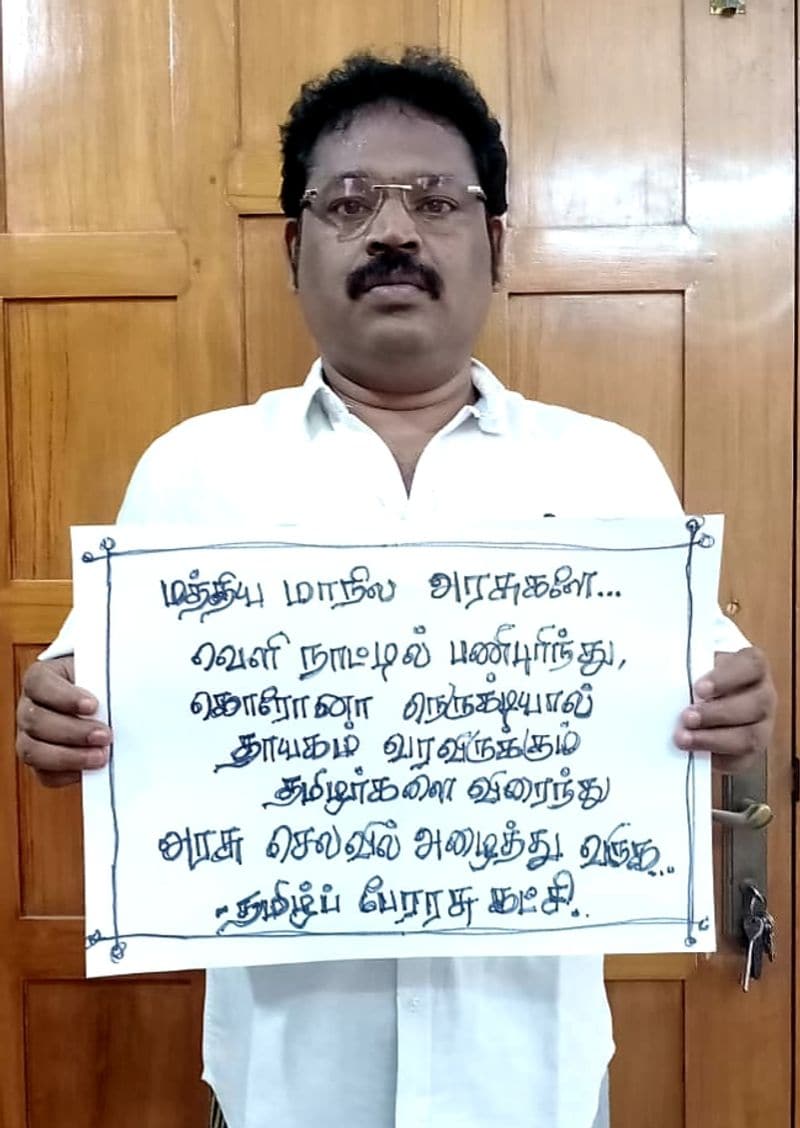 மத்திய மாநில அரசுகளே...
வெளி நாட்டில் பணிபுரிந்து,
கொரோனா நெருக்கடியால்
தாயகம் வரவிருக்கும்
தமிழர்களை விரைந்து
அரசு செலவில் அழைத்து வருக...
- தமிழ்ப் பேரரசு கட்சி..